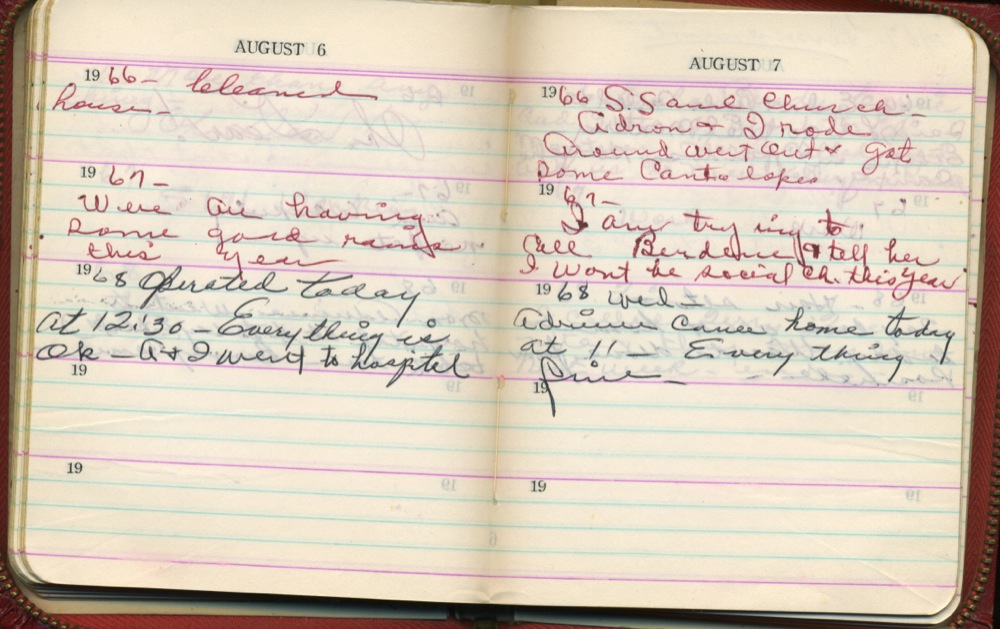 AUGUST 6
1966 - Cleaned
house -
1967 -
We're are having
some good rains
this year
1968 Operated today
at 12:30 - Everything is
Ok - A & I went to hospital
19
19
AUGUST 7
1966 S.S and Church -
Adron & I rode
around went out & got
some Cantalopes
1967 -
I am trying to
Call & tell her
I wont be social ch. this year
1968 wed -
came home today
at 11 - Every thing
fine -
19
19